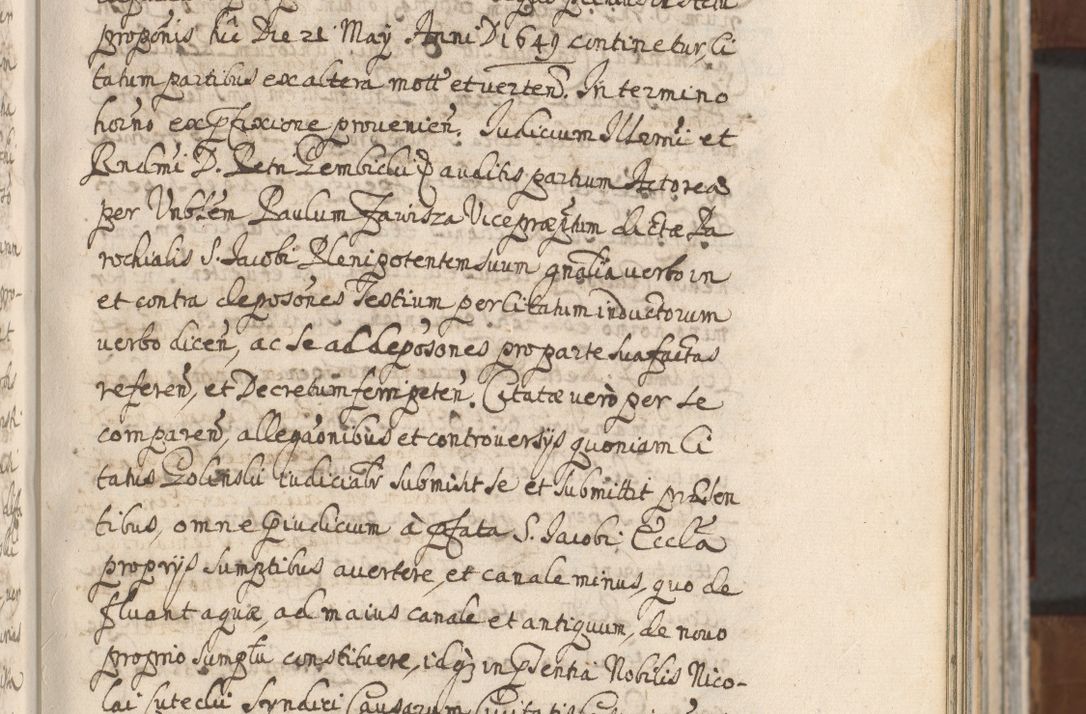 propõnis hũc Die 21 May Anni D 1649 continetur, Ci
tatum partibus ex altera mott̃ et verteñ. In termino
horño ex p̃fixione provenieñ. Iudicium Illr̃mi et
Rndm̃i D. Petri Gembicki p̃ auditis partium Actorea
per Vnblem Paulum Zawisza Vicepræp̃tum dictæ Pa
rochialis S. Jacobi Plenipotentem suum gnãlia verbo in
et contra deposoñes Testium per Citatum inductorum
verbo diceñ, ac se ad deposoñes pro parte sua factas
refereñ, et Decretum ferri peteñ. Citatæ verò per se
compareñ, allegaõnibus et controversijs quoniam Ci
tatus Golinski iudicialr̃ submisit se et submittit præsen
tibus, omne p̃iudicium à p̃fata S. Jacobi Eccl̃a
proprijs sumptibus avertere, et canale minus, quo de
fluant aquæ, ad maius canale et antiquum, de novo
proprio sumptu constituere, idq3 in p̃sentia Nobilis Nico-
lai Syndici Causarum Civitatis